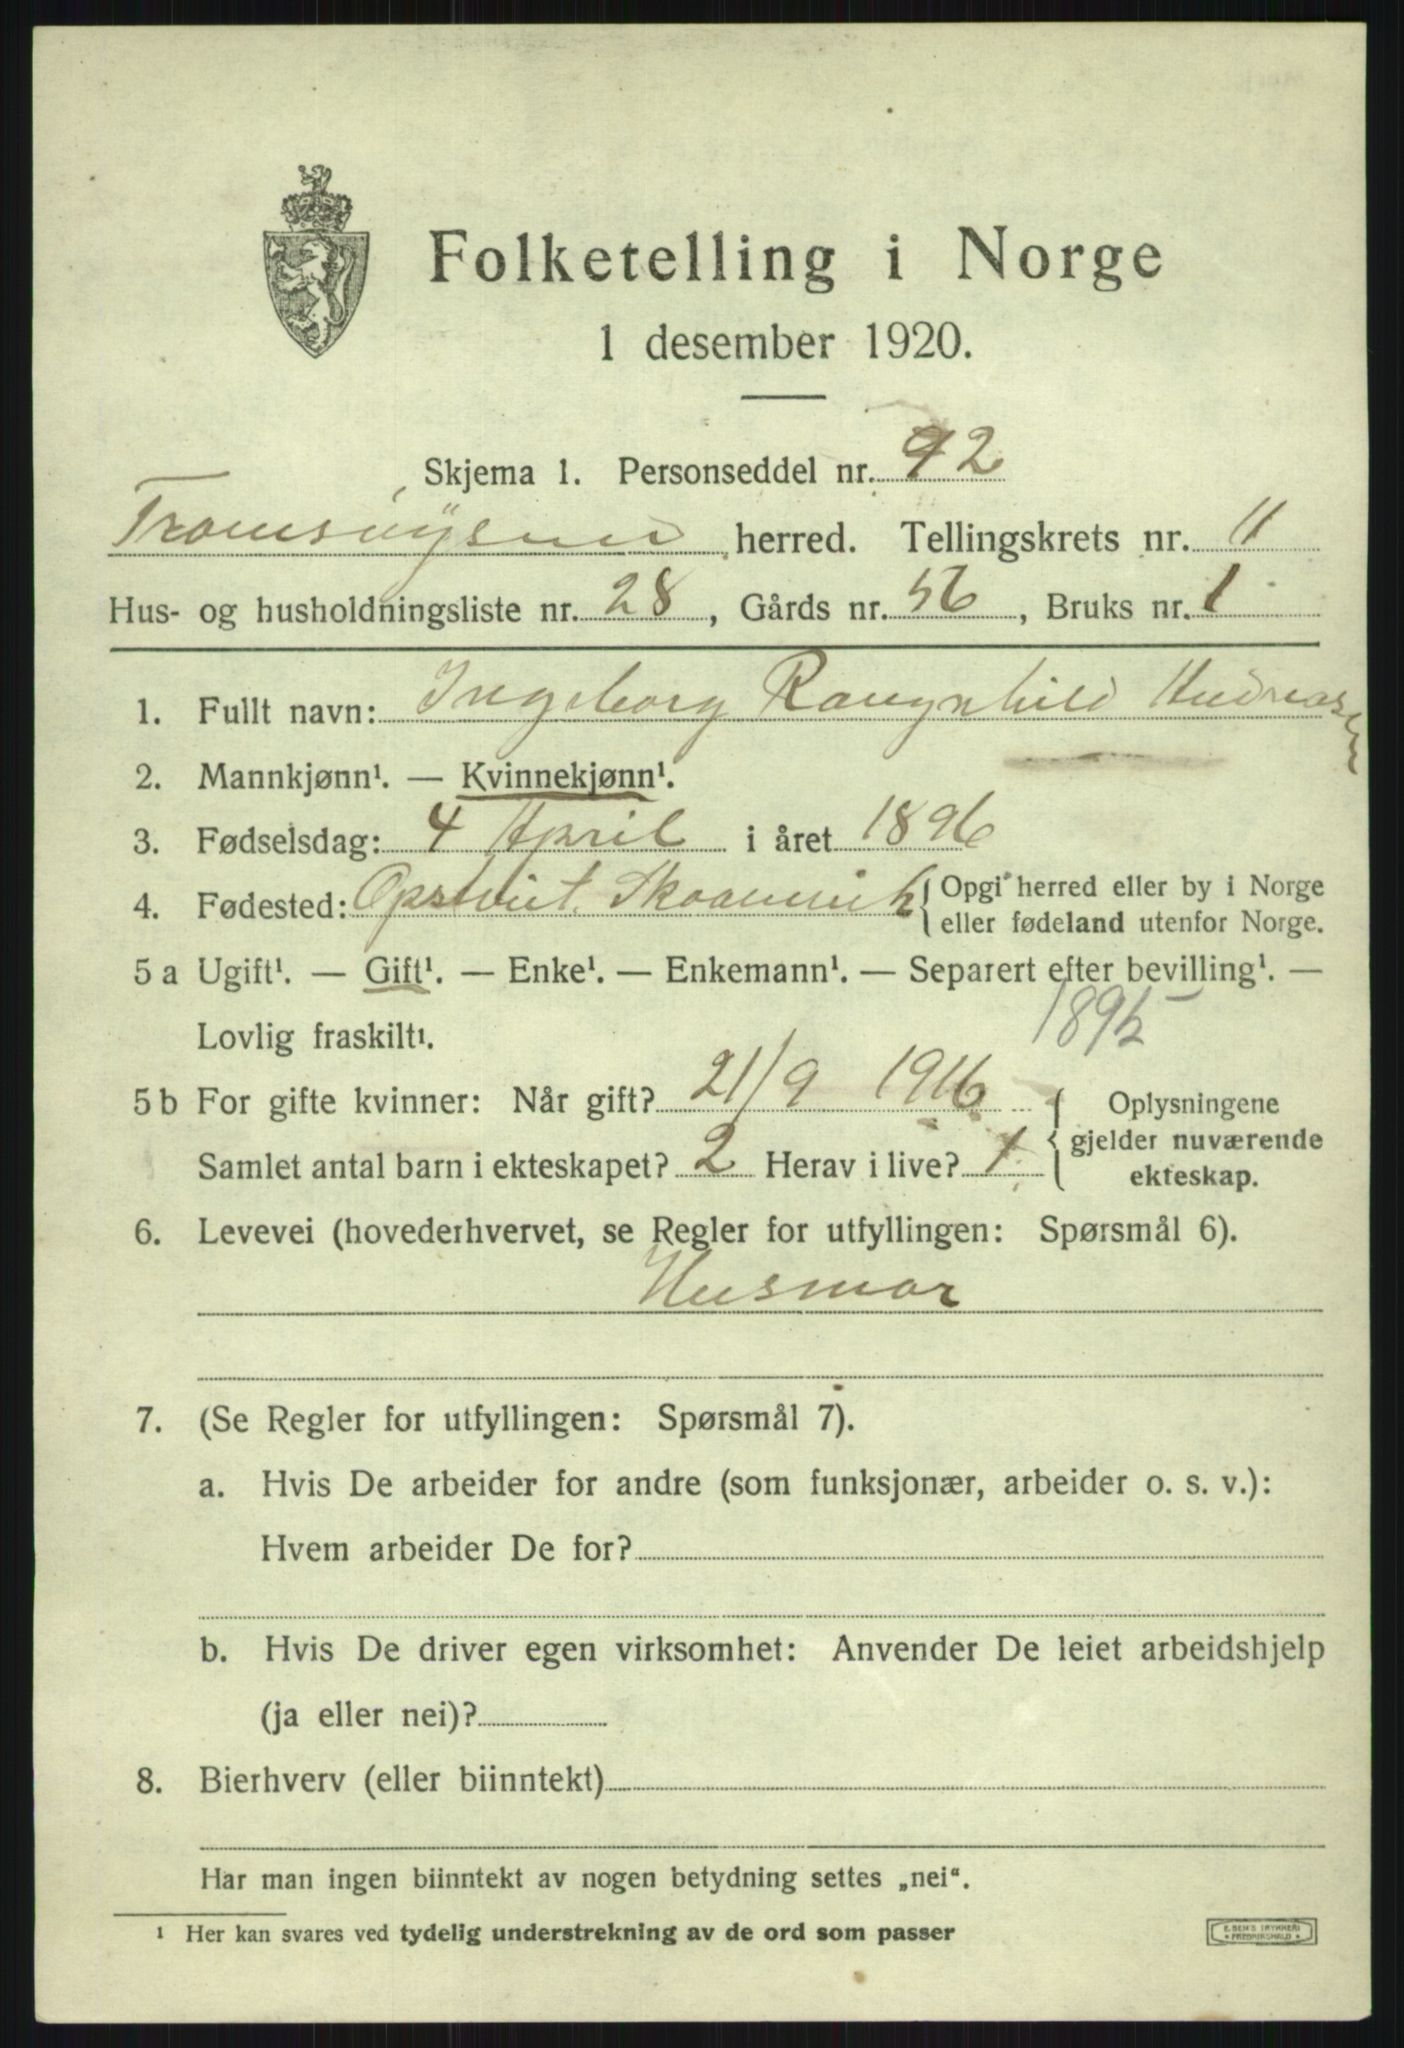 Folketelling i Norge
1 desember 1920.
Skjema 1. Personseddel nr. 92
Tromsøysund herred. Tellingskrets nr. 11
Hus- og husholdningsliste nr. 28, Gårds nr. 56, Bruks nr. 1
1. Fullt navn: Ingeborg Raugnhild Andreassen
2. Mannkjønn¹. — Kvinnekjønn¹.
3. Fødselsdag: 4 April i året 1896
4. Fødested: { Opgi herred eller by i Norge
eller fødeland utenfor Norge.
5 a Ugift¹. — Gift¹. — Enke¹. — Enkemann¹. — Separert efter bevilling¹. —
Lovlig fraskilt¹. 1895
5 b For gifte kvinner: Når gift? 21/9 1916 { Oplysningene
gjelder nuværende
ekteskap.
Samlet antal barn i ekteskapet? 2 Herav i live? 1
6. Levevei (hovederhvervet, se Regler for utfyllingen: Spørsmål 6).
Husmor
7. (Se Regler for utfyllingen: Spørsmål 7).
a. Hvis De arbeider for andre (som funksjonær, arbeider o. s. v.):
Hvem arbeider De for?
b. Hvis De driver egen virksomhet: Anvender De leiet arbeidshjelp
(ja eller nei)?
8. Bierhverv (eller biinntekt)
Har man ingen biinntekt av nogen betydning settes „nei“.
¹ Her kan svares ved tydelig understrekning av de ord som passer
E. SEM'S TRYKKERI
* FREDRIKSHALD *